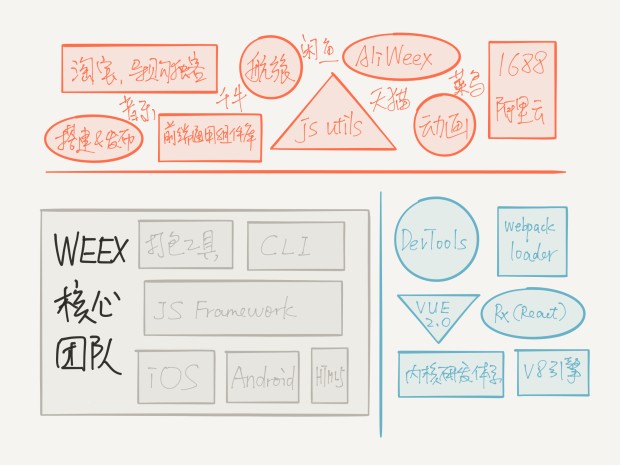 淘宝,导购独客
航旅
闲鱼
AliWeex
1688
阿里云
音乐
千牛
天猫
菜鸟
搭建&发布
前端通用组件库
js utils
动画
WEEX
核心
团队
打包工具
CLI
JS Framework
iOS
Android
HTML5
DevTools
webpack
loader
VUE
2.0
Rx(React)
内核研发体系
V8引擎